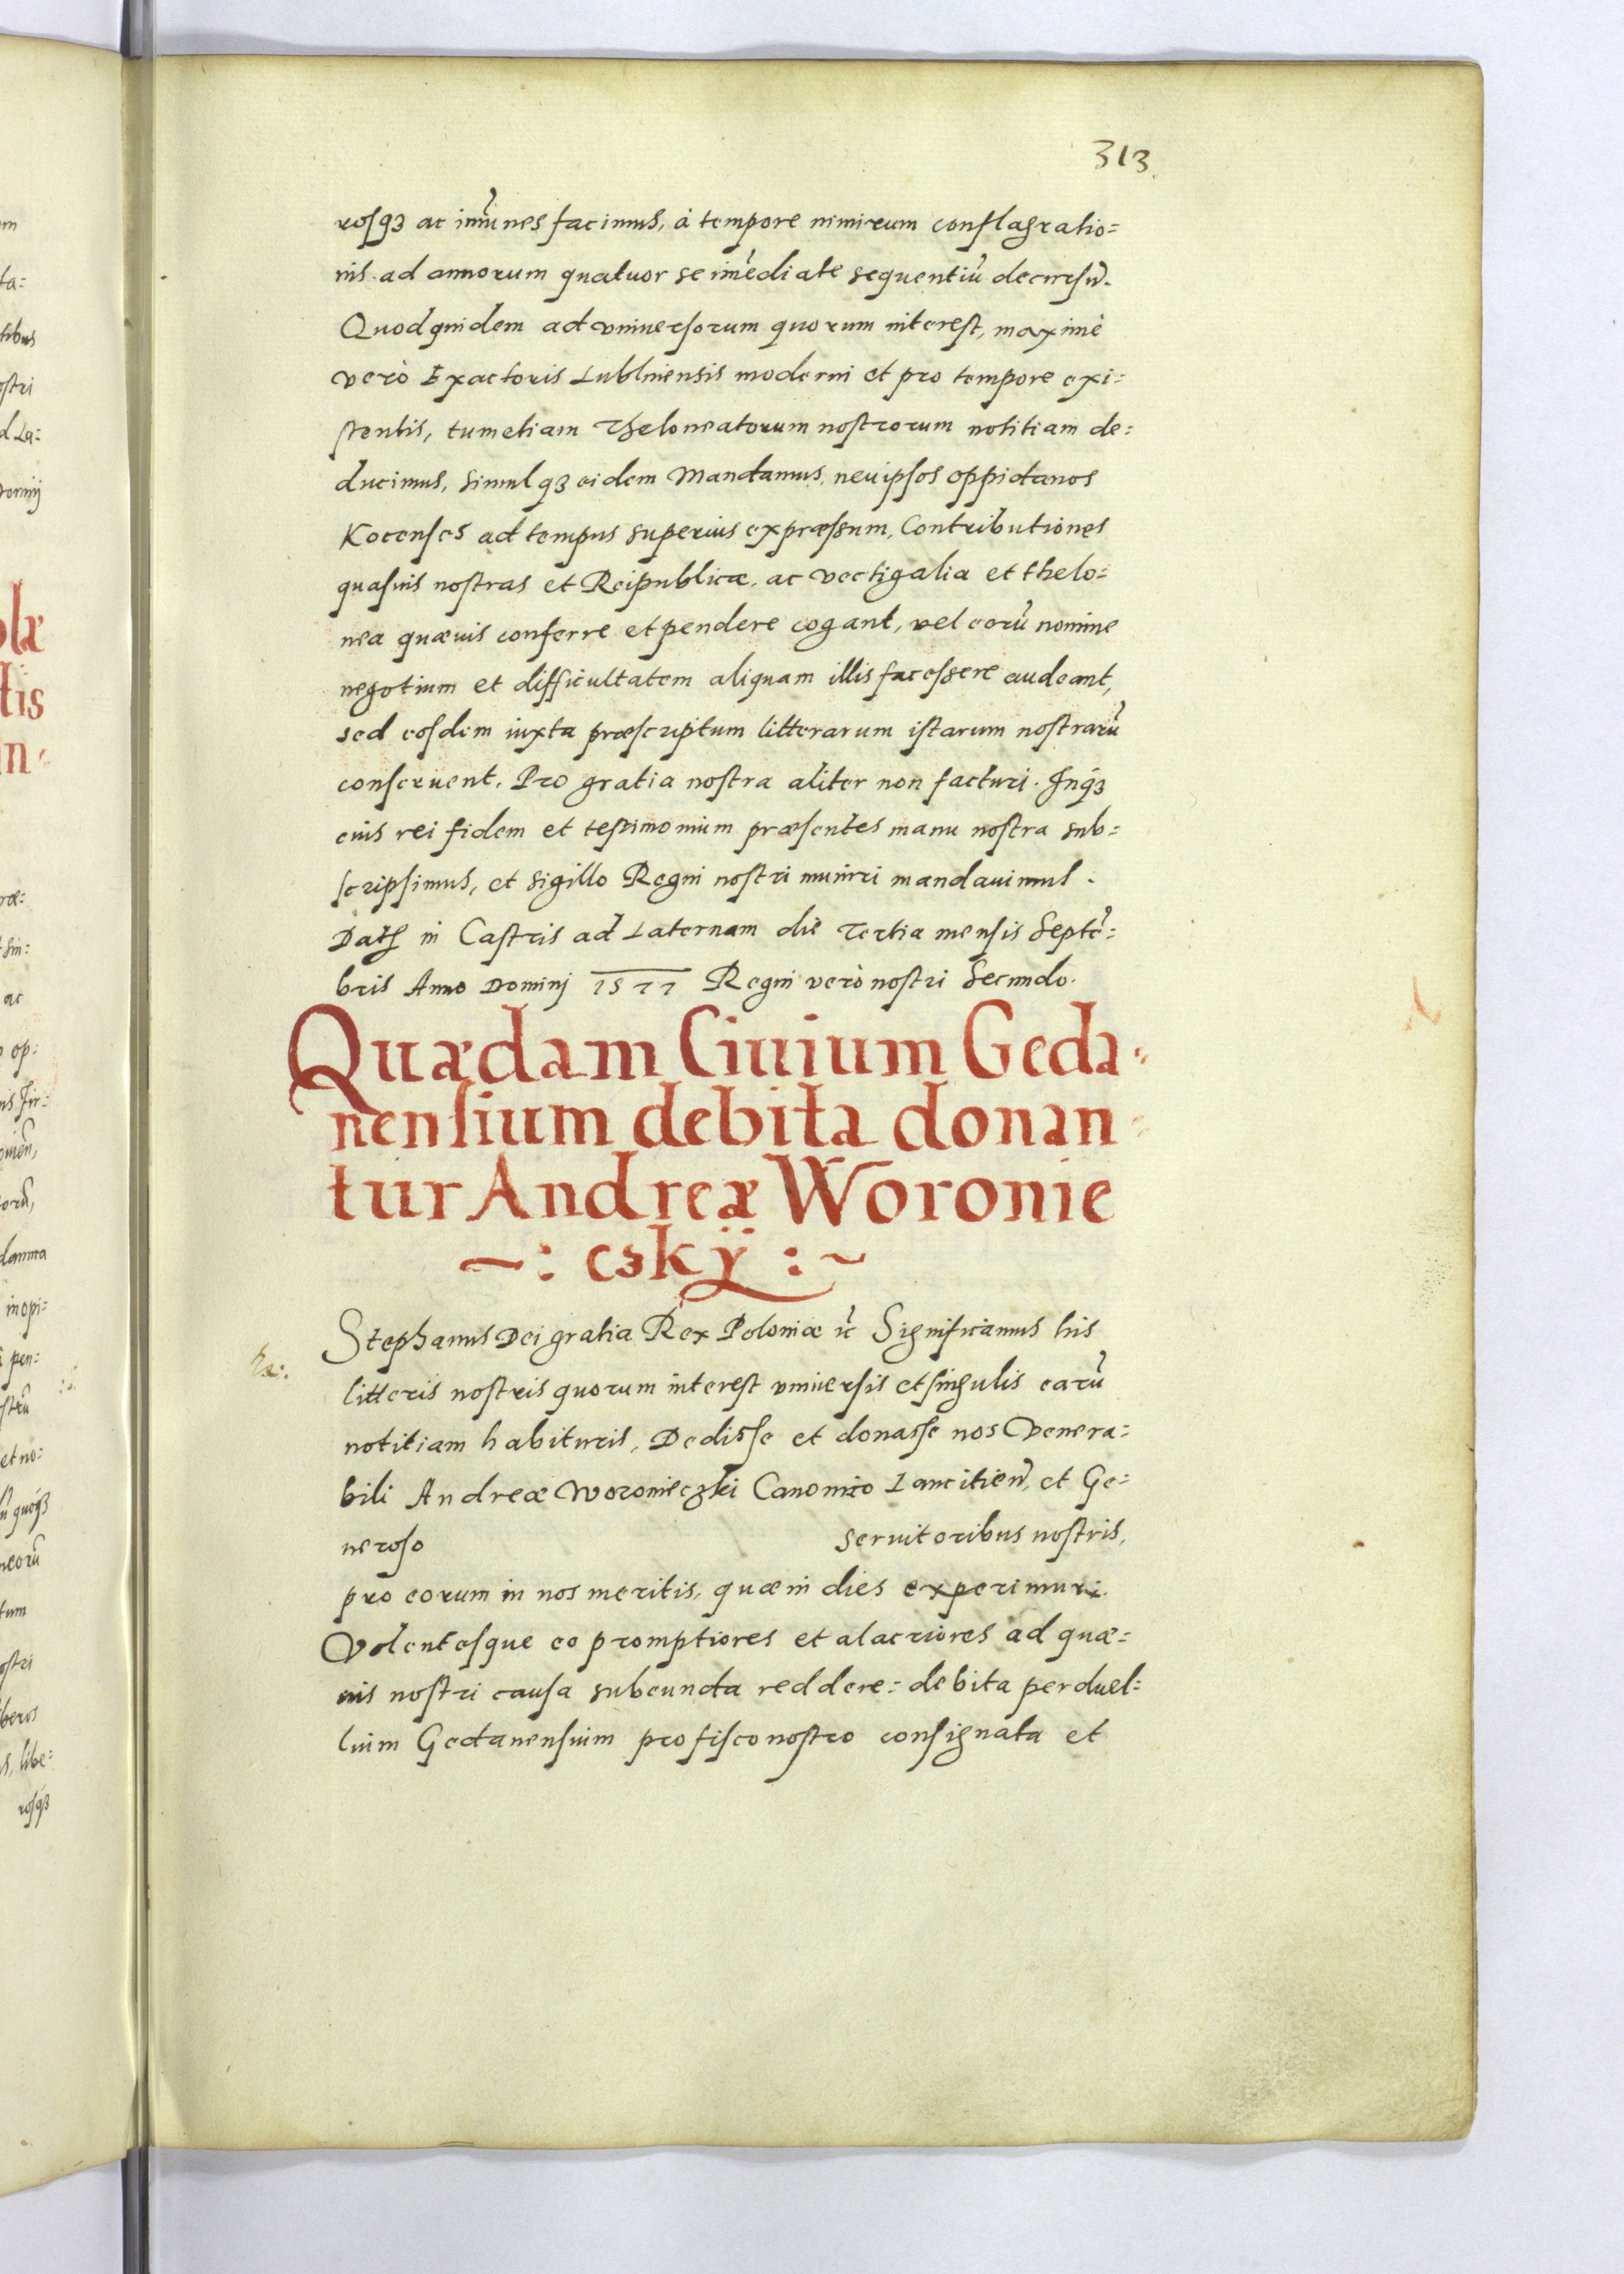 313
rosq3 ac im̃unes facimus, à tempore nimirum conflagratio=
nis ad annorum quatuor se im̃ediate sequentiũ decursũ.
Quod quidem ad vniuersorum quorum interest, maximè
verò Exactoris Lublinensis moderni et pro tempore exi=
stentis, tum etiam Theloneatorum nostrorum notitiam de=
ducimus, simulq3 eidem Mandamus, ne vipsos oppidanos
Kocenses ad tempus superius expræssum, Contributiones
quasuis nostras et Reipublicæ, ac vectigalia et thelo=
nea quæuis conferre et pendere cogant, vel eorũ nomine
negotium et difficultatem aliquam illis facessere audeant,
sed eosdem iuxta præscriptum litterarum istarum nostrarũ
conseruent. Pro gratia nostra aliter non facturi. Inq3
eius rei fidem et testimonium præsentes manu nostra sub=
scripsimus, et sigillo Regni nostri muniri mandauimus.
Datꝭ in Castris ad Laternam die Tertia mensis Septẽ=
bris Anno Dominj 1577 Regni verò nostri Secundo.
Quædam Ciuium Geda=
nensium debita donan=
tur Andreæ Woronie
~: cskÿ :~
Stephanus Dei gratia Rex Poloniæ ñc Significamus his
litteris nostris quorum interest vniuersis et singulis earũ
notitiam habituris, Dedisse et donasse nos Venera=
bili Andreæ Woronieczki Canonico Lancitieñ, et Ge=
neroso servitoribus nostris,
pro eorum in nos meritis, quæ in dies experimur.
Volentesque eo promptiores et alacriores ad quæ=
uis nostri causa subeunda reddere= debita perduel=
lium Gedanensium pro fisco nostro consignata et